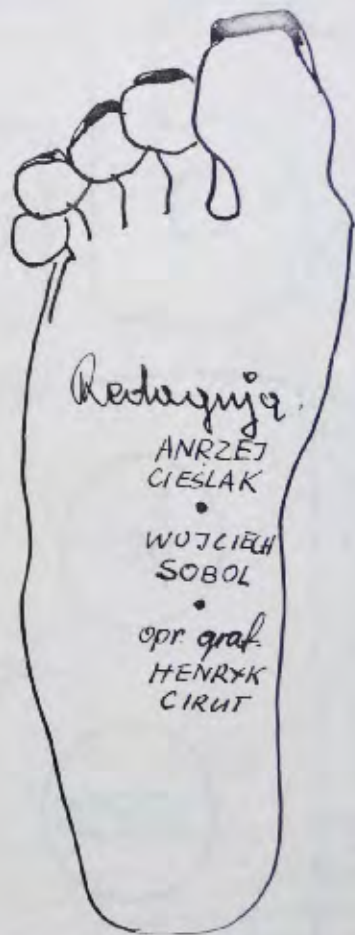 Redagują.
ANRZEJ
CIEŚLAK
•
WOJCIECH
SOBOL
•
opr. graf.
HENRYK
CIRUT